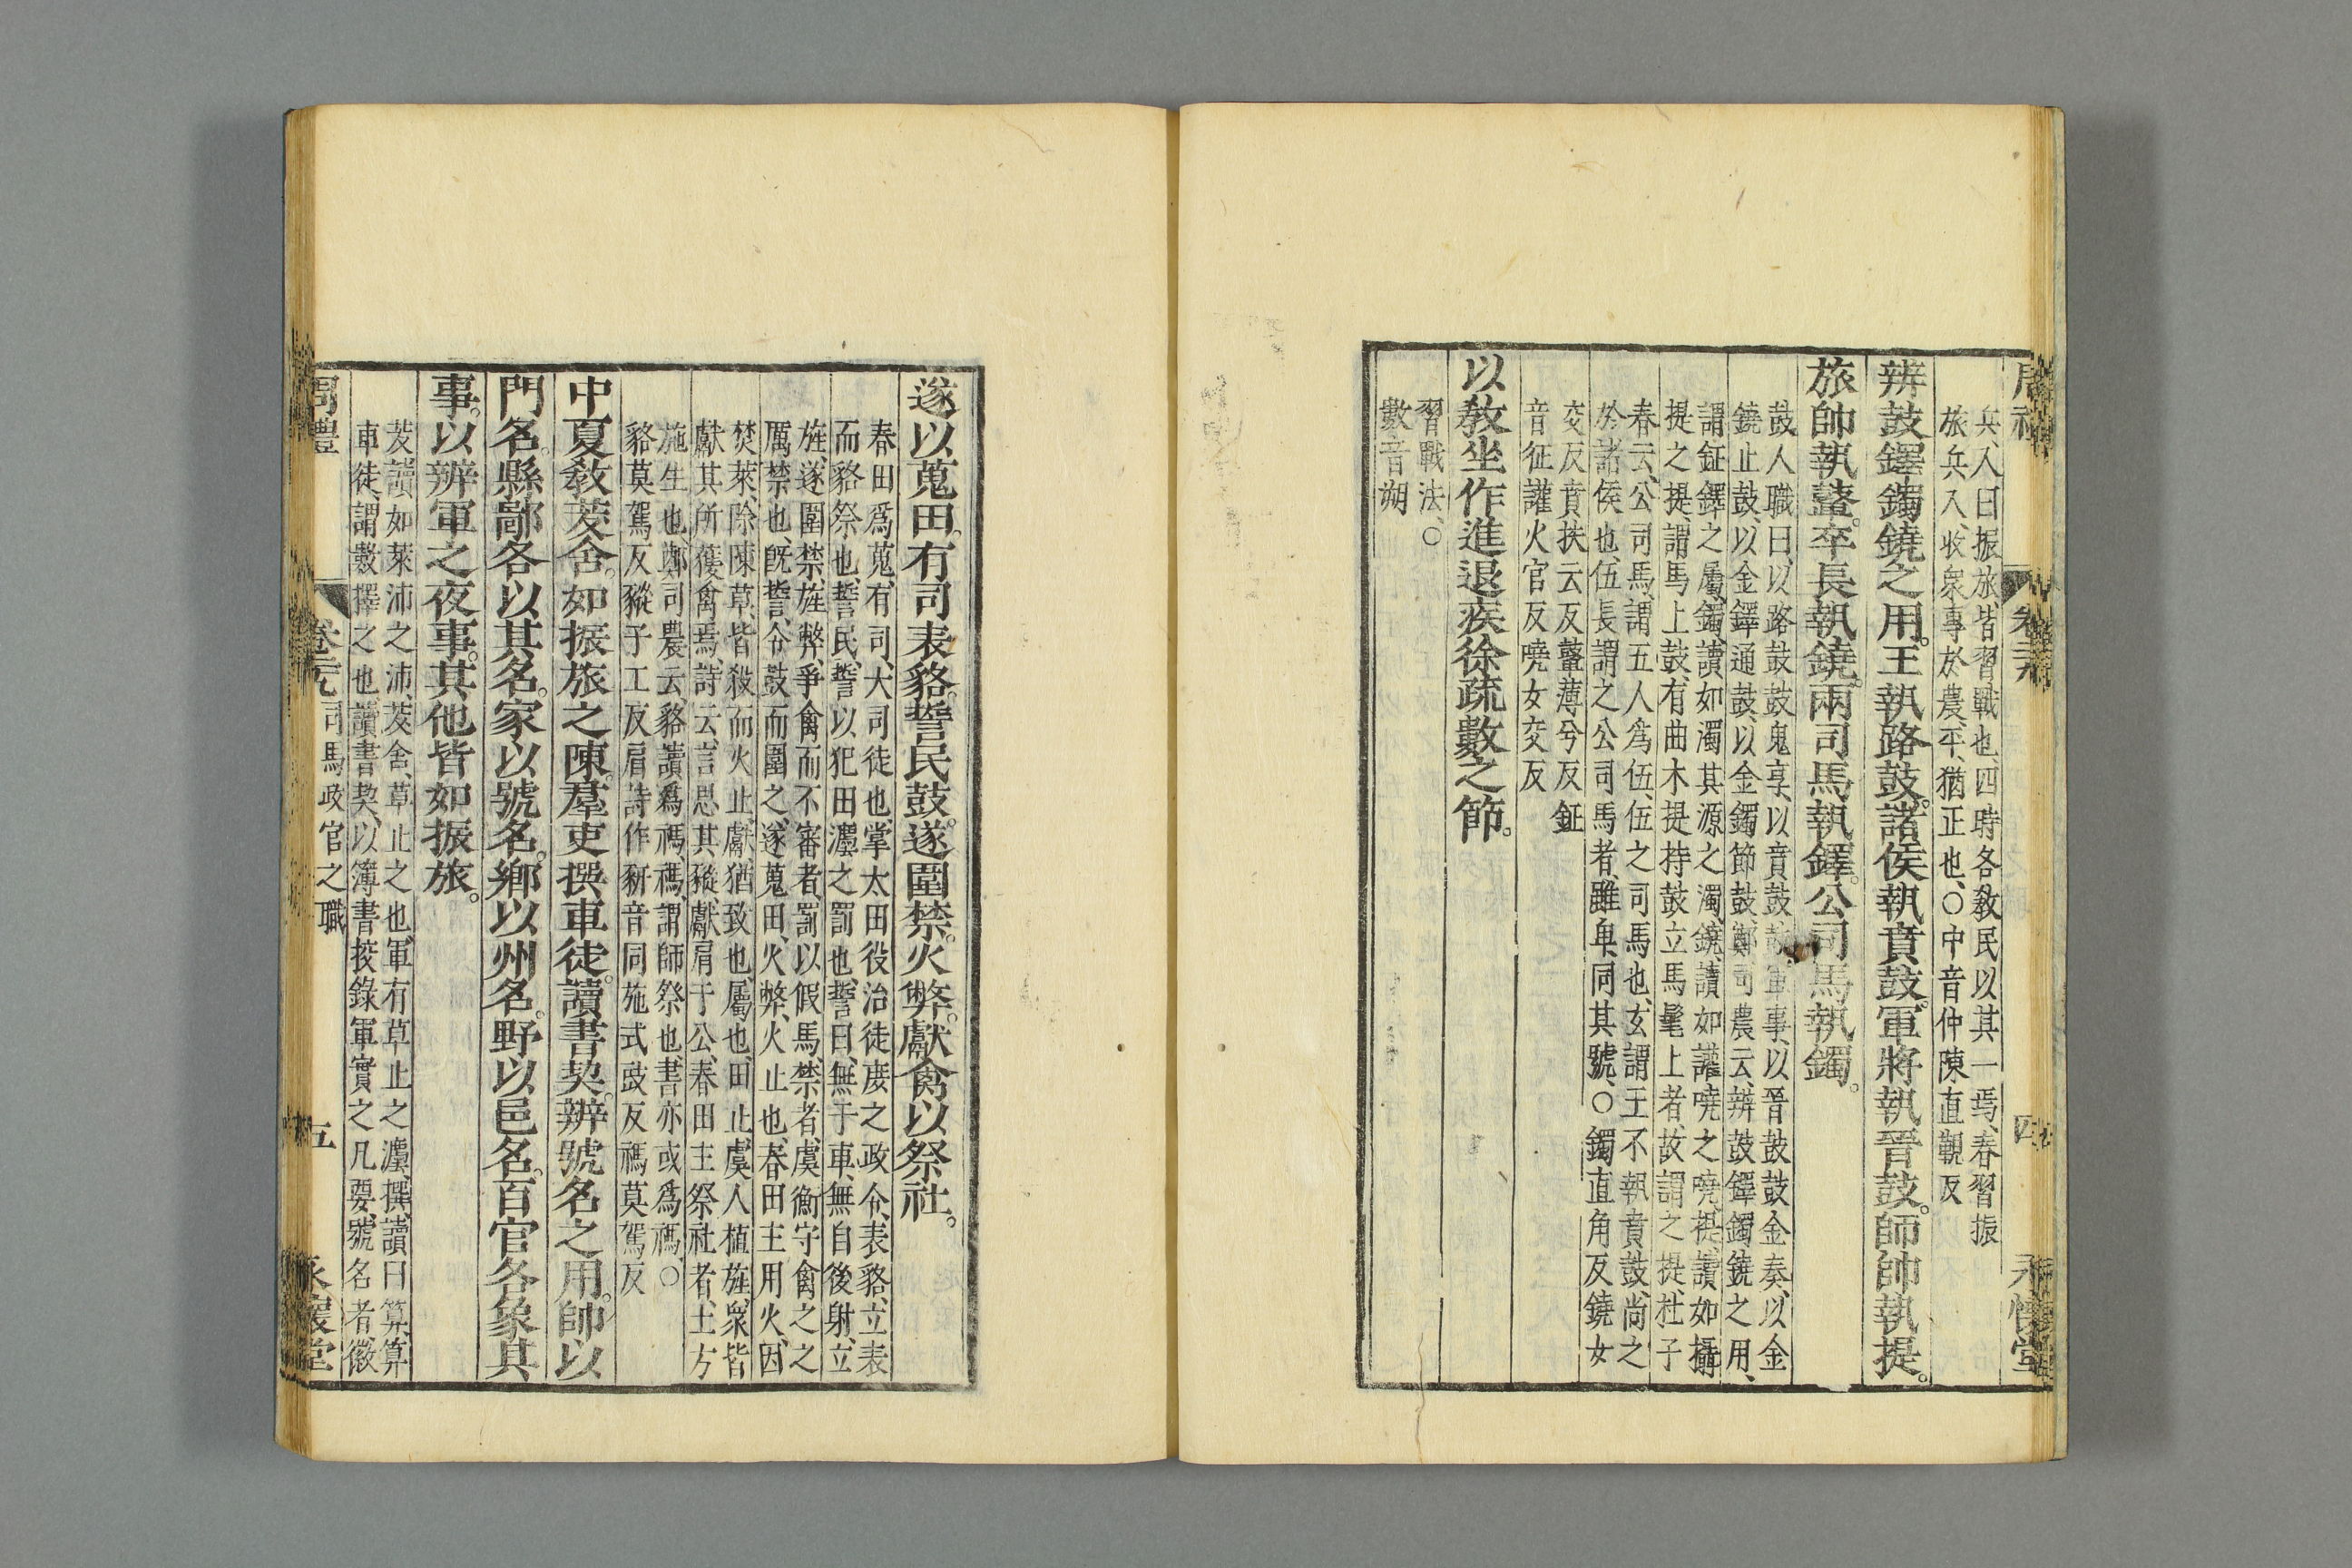 兵入曰振旅皆習戰也四時各敎民以其一焉春習振
旅兵入收衆專於農平猶正也○中音仲陳直覲反
辨鼓鐸鐲鐃之用。王執路鼓。諸侯執賁鼓。軍將執晉鼓。師帥執提。
旅帥執鼜。卒長執鐃。兩司馬執鐸。公司馬執鐲。
鼓人職曰以路鼓鼓鬼享以賁鼓鼓軍事以晉鼓鼓金奏以金
鐃止鼓以金鐸通鼓以金鐲節鼓鄭司農云辨鼓鐸鐲鐃之用
謂鉦鐸之屬鐲讀如濁其源之濁鐃讀如讙嘵之嘵提讀如攝
提之提謂馬上鼓有曲木提持鼓立馬髦上者故謂之提杜子
春云公司馬謂五人爲伍伍之司馬也玄謂王不執賁鼓尚之
於諸侯也伍長謂之公司馬者雖卑同其號○鐲直角反鐃女
交反賁扶云反鼜薄兮反鉦
音征讙火官反嘵女交反
以敎坐作進退疾徐疏數之節。
習戰法○
數音朔
周禮 卷二十九 四 永懷堂
遂以蒐田。有司表貉。誓民鼓。遂圍禁。火弊。獻禽以祭社。
春田爲蒐有司大司徒也掌大田役治徒庶之政令表貉立表
而貉祭也誓民誓以犯田灋之罰也誓曰無干車無自後射立
旌遂圍禁旌弊爭禽而不審者罰以假馬禁者虞衡守禽之之
厲禁也旣誓令鼓而圍之遂蒐田火弊火止也春田主用火因
焚萊除陳草皆殺而火止獻猶致也屬也田止虞人植旌衆皆
獻其所獲禽焉詩云言私其豵獻肩于公春田主祭社者土方
施生也鄭司農云貉讀爲禡禡謂師祭也書亦或爲禡○
貉莫駕反豵子工反肩詩作豜音同施式豉反禡莫駕反
中夏敎茇舍。如振旅之陳。羣吏撰車徒。讀書契。辨號名之用。帥以
門名。縣鄙各以其名。家以號名。鄉以州名。野以邑名。百官各象其
事。以辨軍之夜事。其他皆如振旅。
茇讀如萊沛之沛茇舍草止之也軍有草止之灋撰讀曰算算
車徒謂數擇之也讀書契以簿書挍錄軍實之凡要號名者徽
周禮 卷二十九 司馬政官之職 五 永懷堂